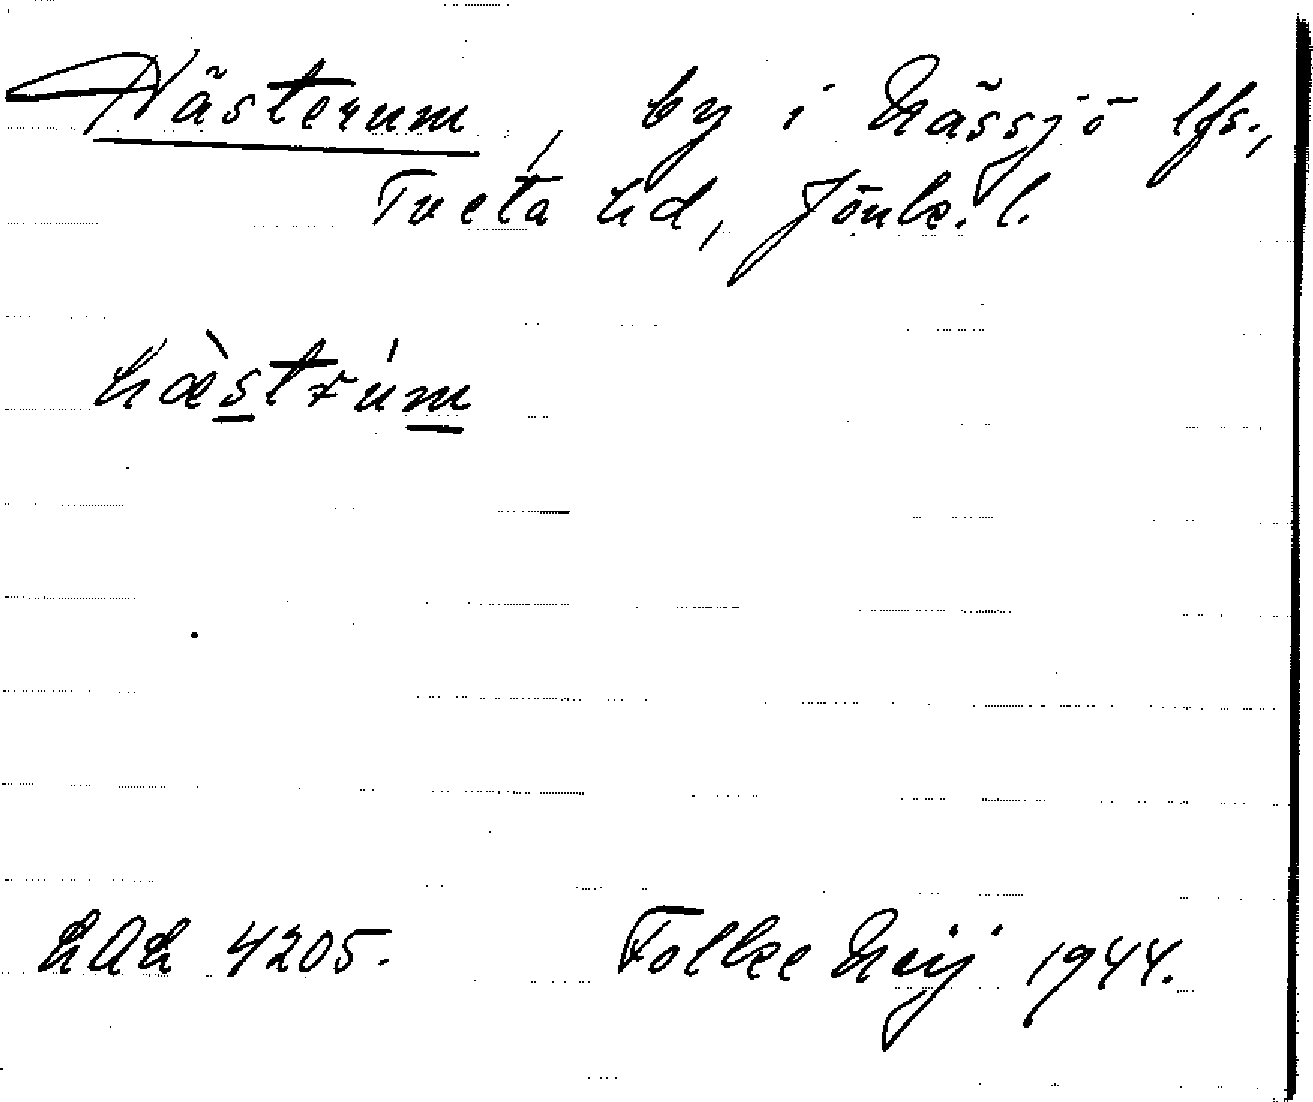 Hästerum, by i Nässjö lfs.,
Tveta hd, Jönk. l.
hæ̀strúm
4205. Folke Neij 1944.